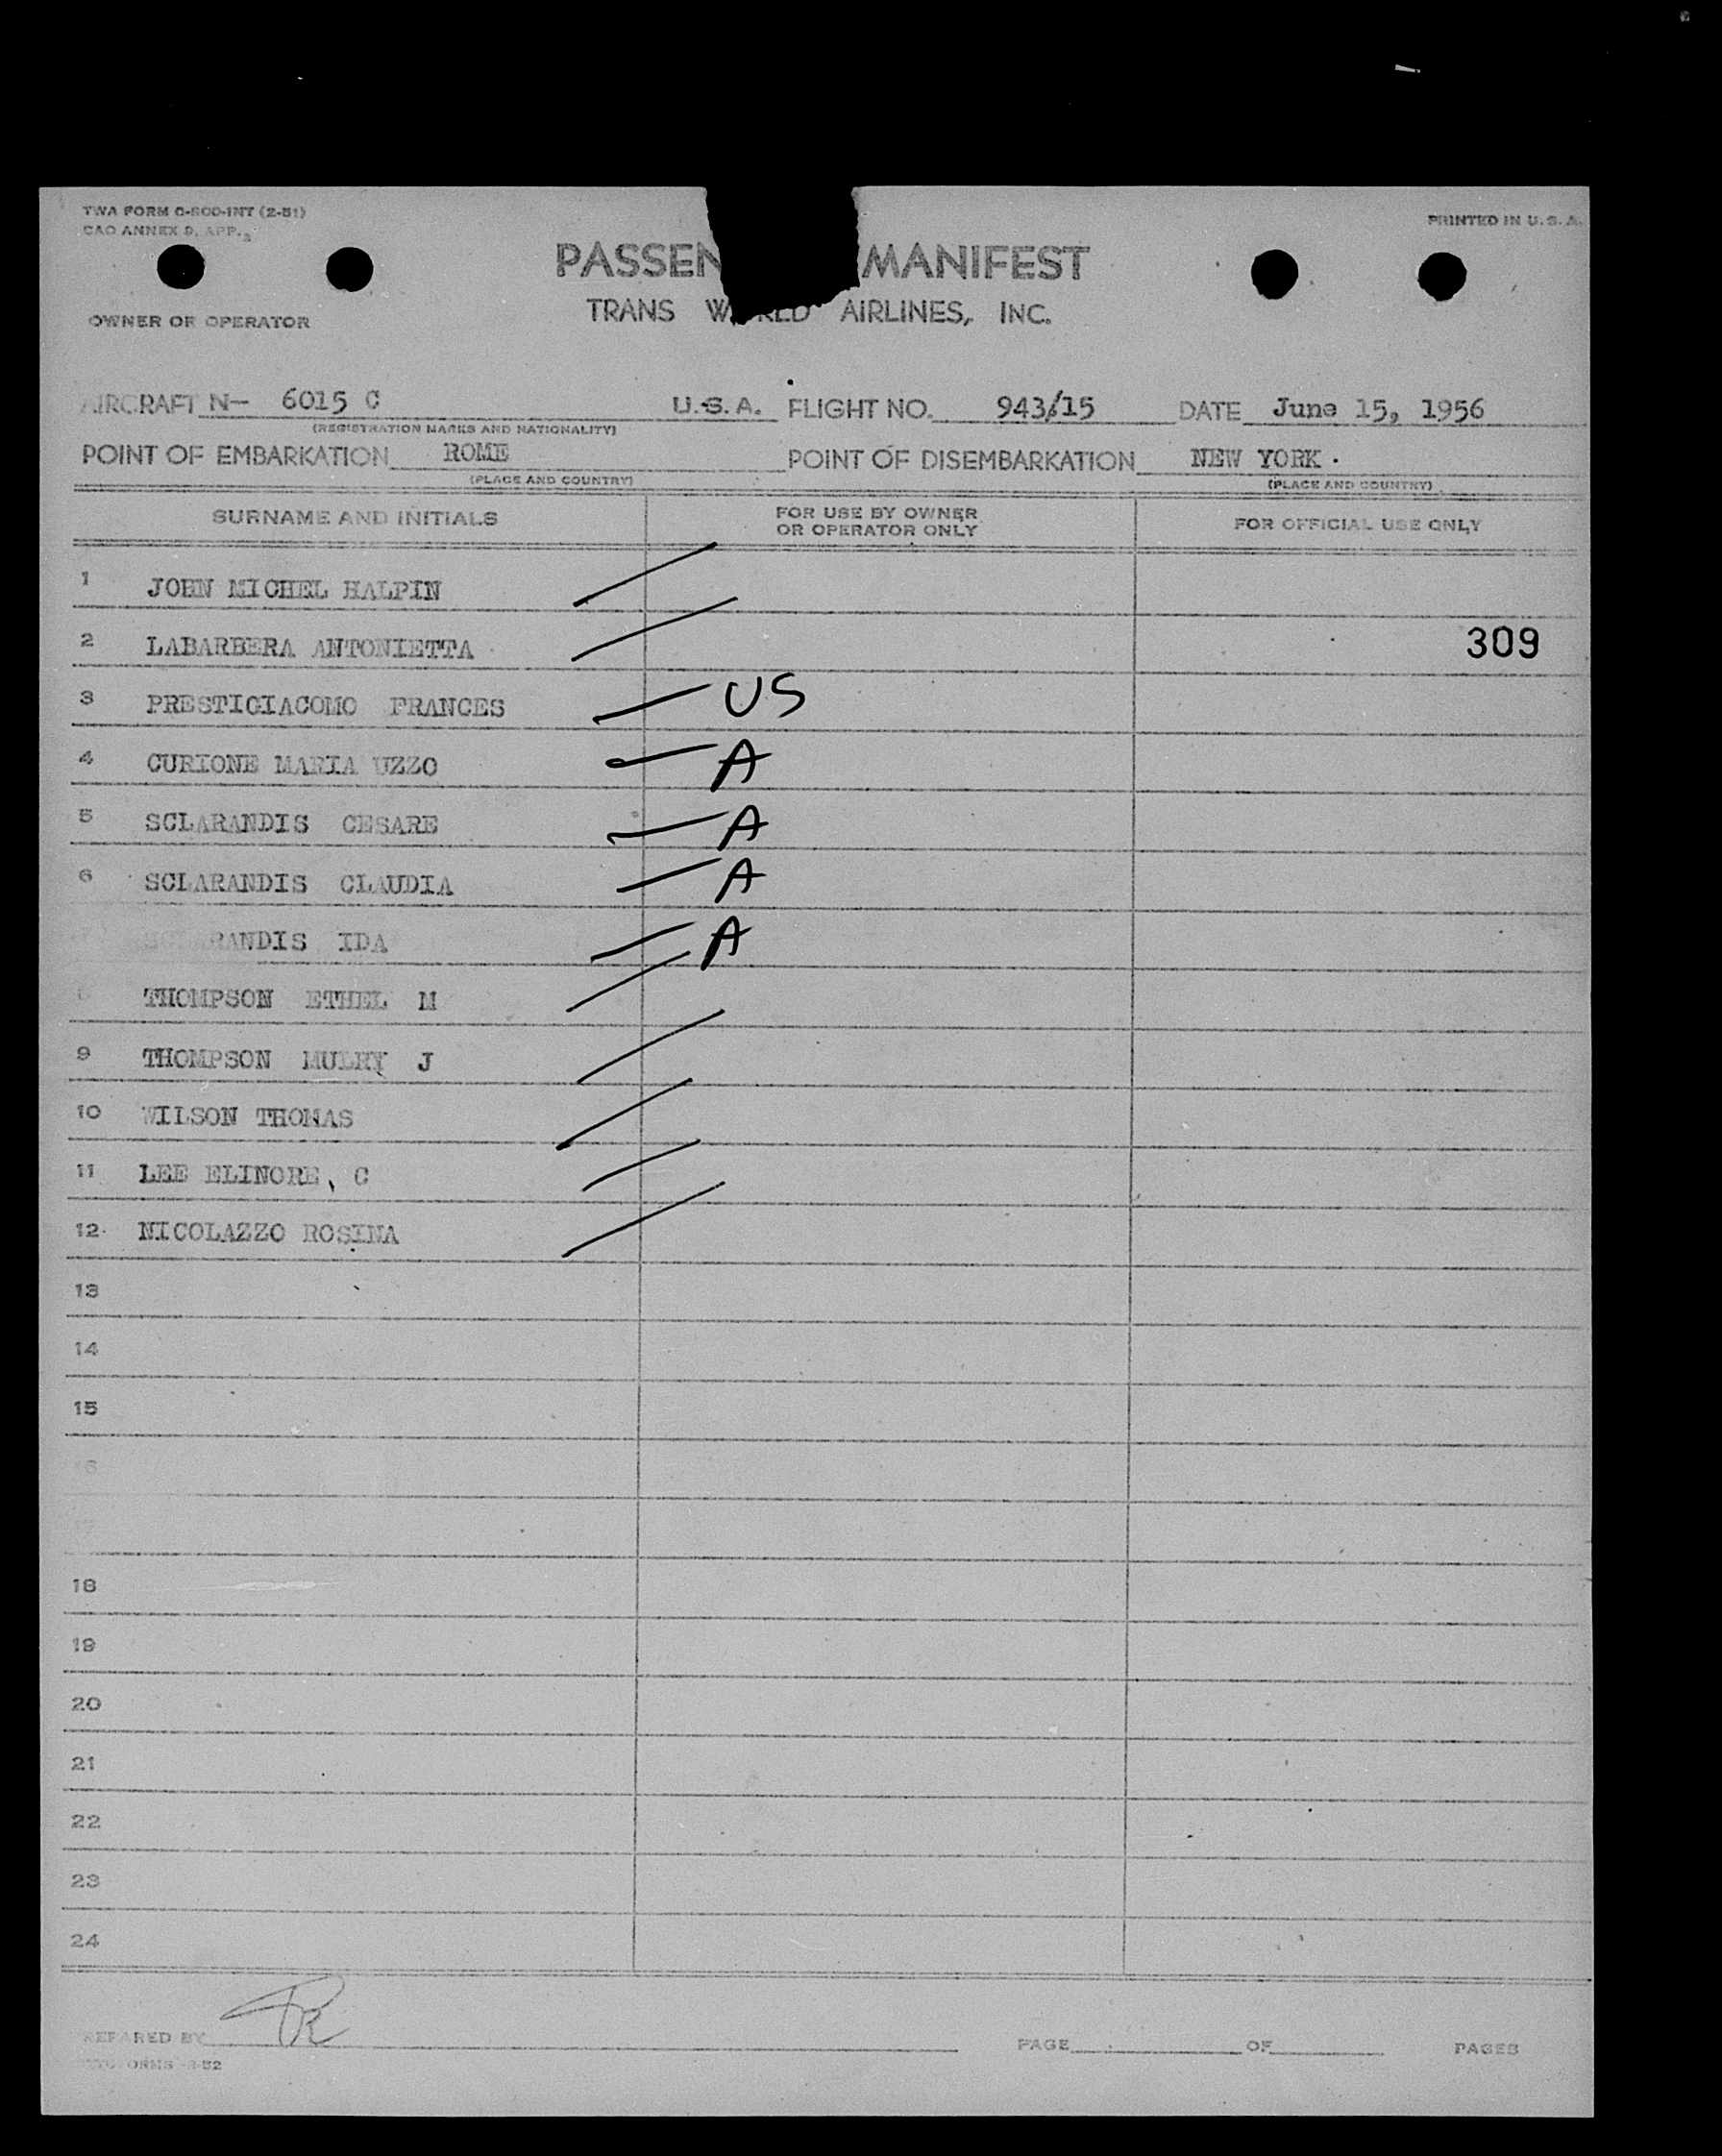 TWA FORM O-500-INT (2-51)
CAO ANNEX 9, APP. 3
PRINTED IN U.S.A.
PASSEN MANIFEST
TRANS WORLD AIRLINES, INC.
OWNER OR OPERATOR
AIRCRAFT N- 6015 C U.S.A. FLIGHT NO. 943/15 DATE June 15, 1956
(REGISTRATION MARKS AND NATIONALITY)
POINT OF EMBARKATION ROME POINT OF DISEMBARKATION NEW YORK.
(PLACE AND COUNTRY) (PLACE AND COUNTRY)
SURNAME AND INITIALS FOR USE BY OWNER OR OPERATOR ONLY FOR OFFICIAL USE ONLY
1 JOHN MICHEL HALPIN
2 LABARBERA ANTONIETTA 309
3 PRESTIGIACOMO FRANCES US
4 CURIONE MARIA UZZO A
5 SCLARANDIS CESARE A
6 SCLARANDIS CLAUDIA A
SCLARANDIS IDA A
8 THOMPSON ETHEL M
9 THOMPSON MULRY J
10 WILSON THOMAS
11 LEE ELINORE, C
12 NICOLAZZO ROSINA
13
14
15
16
18
19
20
21
22
23
24
PREPARED BY TR
PAGE OF PAGES